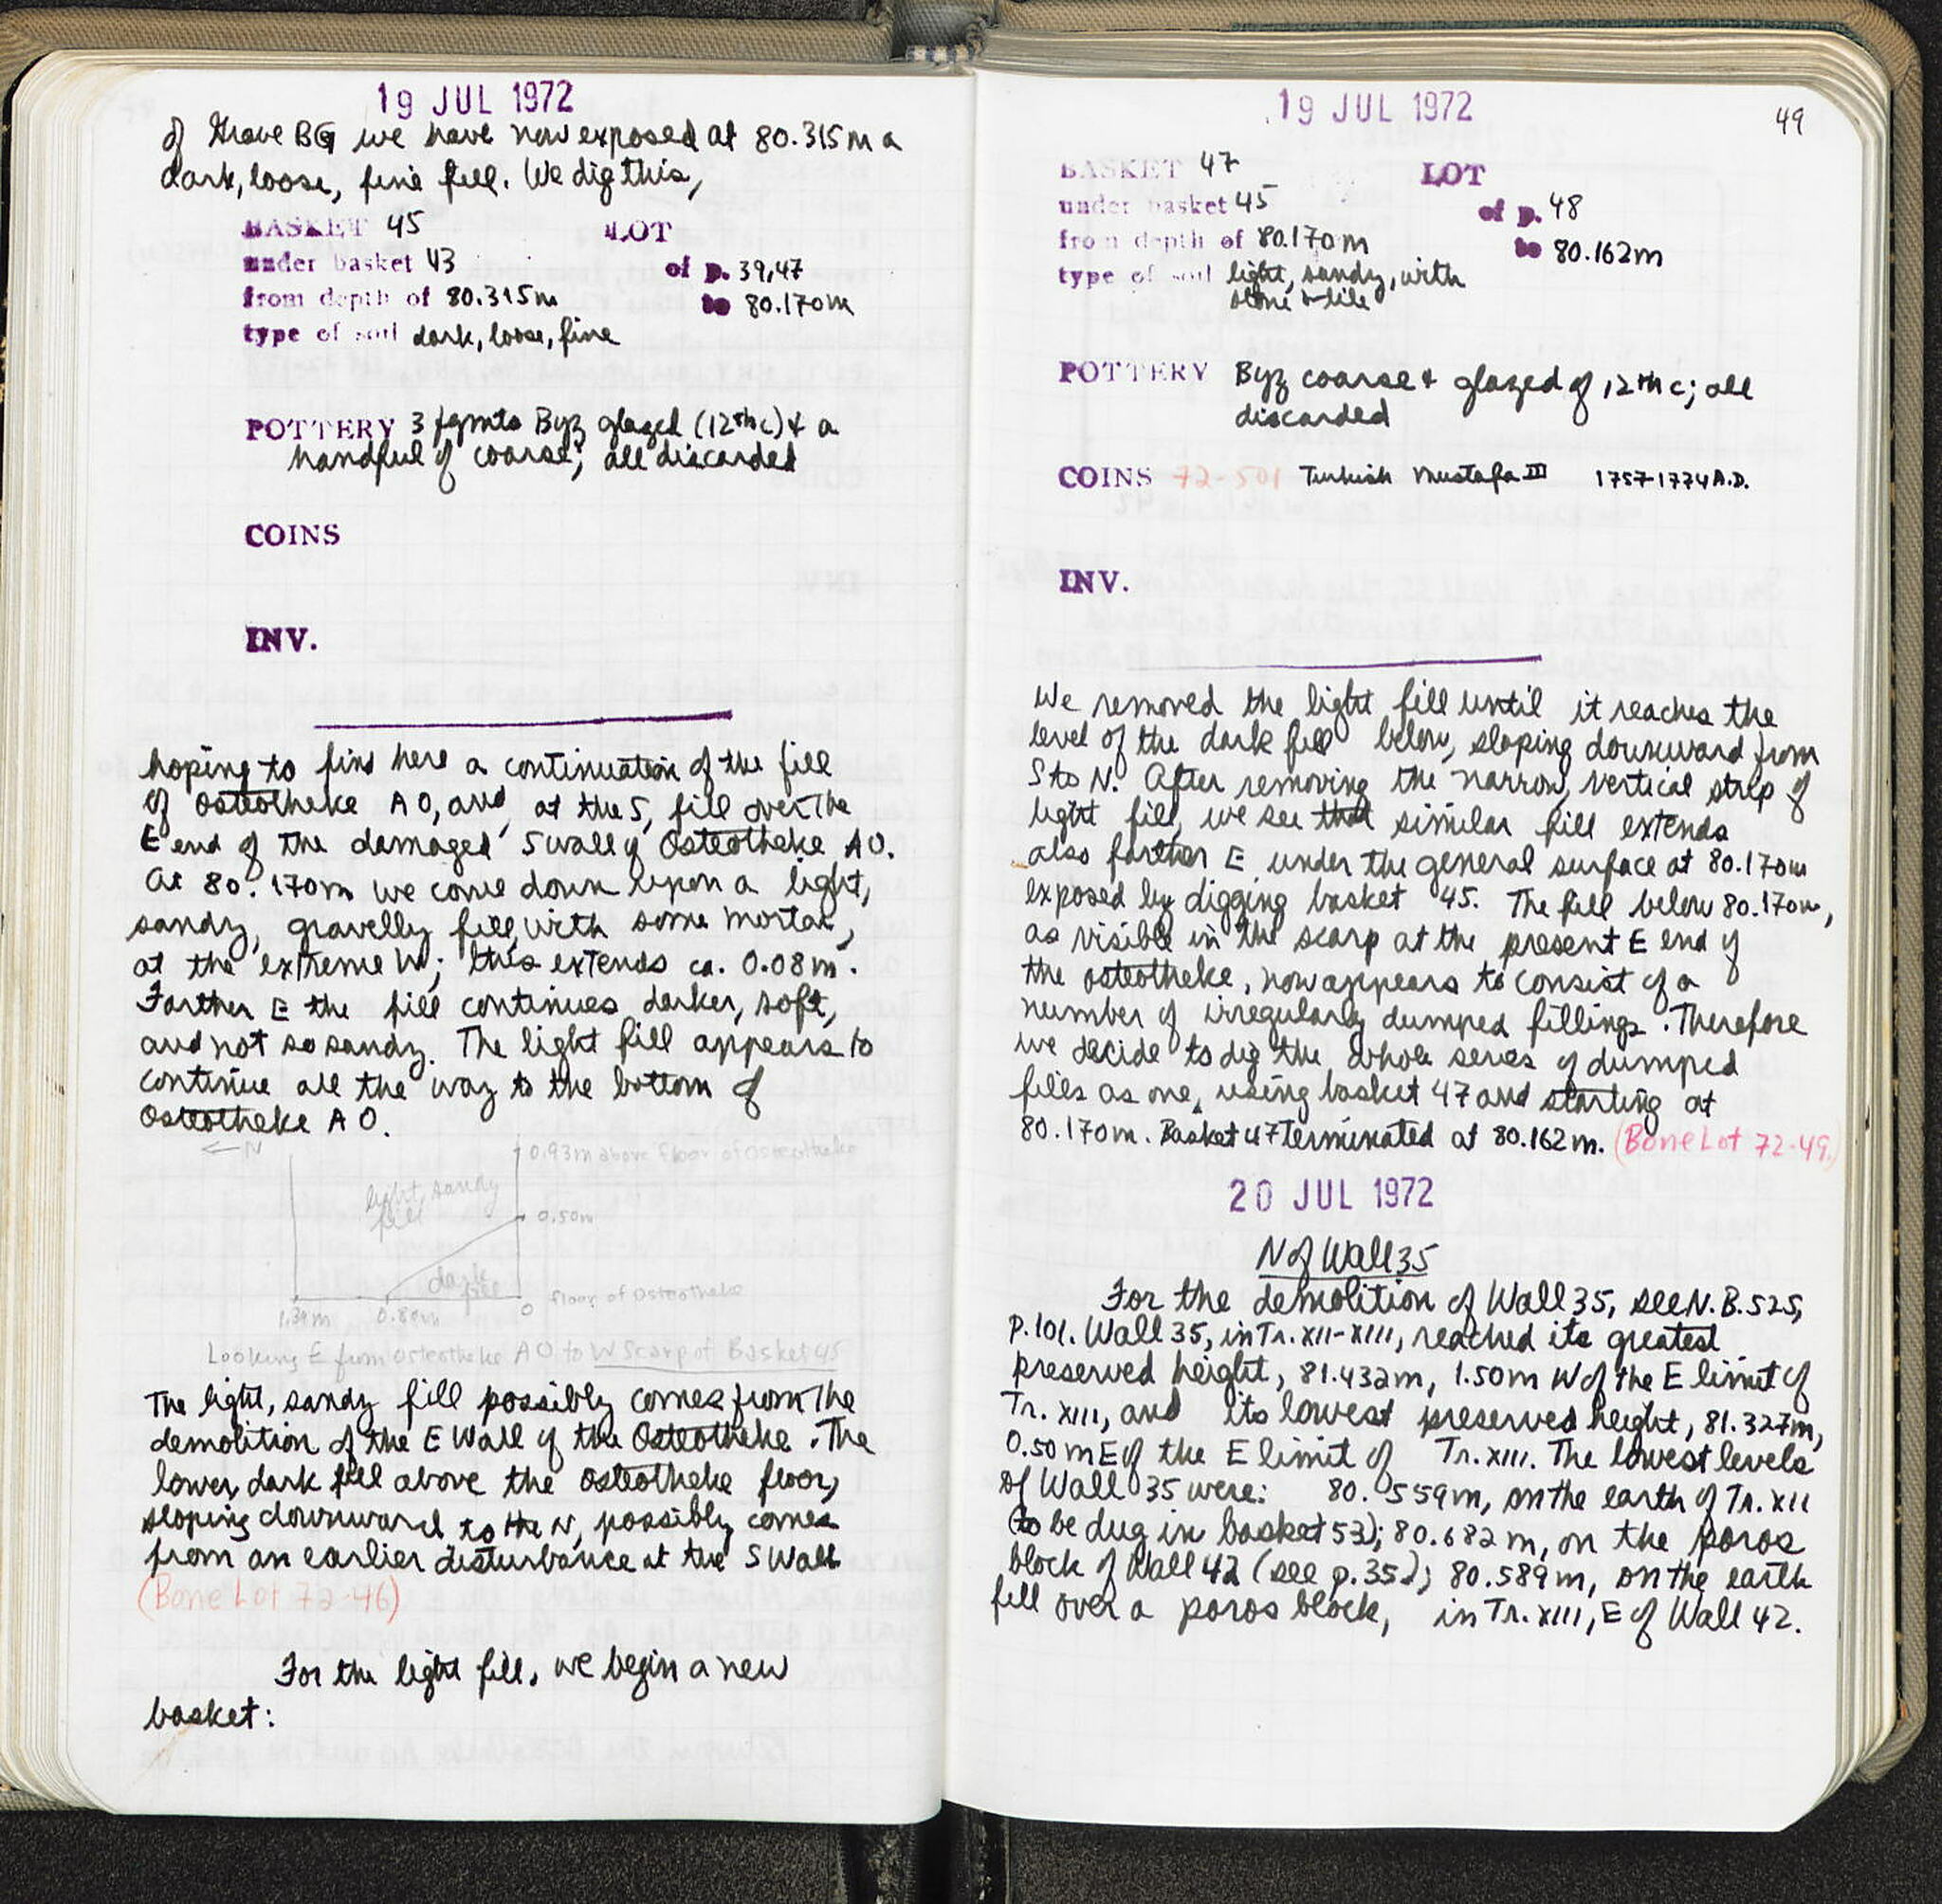 19 JUL 1972
of Grave BG we have now exposed at 80.315m a
dark, loose, fine fill. We dig this,
BASKET 45 LOT
under basket 43 of p. 39,47
from depth of 80.315m to 80.170m
type of soil dark, loose, fine
POTTERY 3 fgmts Byz glazed (12th c) & a
handful of coarse; all discarded
COINS
INV.
hoping to find here a continuation of the fill
of Osteotheke AO, and, at the S, fill over the
E end of the damaged S wall of Osteotheke AO.
At 80.170m we come down upon a light,
sandy, gravelly fill, with some mortar,
at the extreme W; this extends ca. 0.08m.
Farther E the fill continues darker, soft,
and not so sandy. The light fill appears to
continue all the way to the bottom of
Osteotheke AO.
← N
0.93m above floor of Osteotheke
light, sandy
fill
0.50m
dark
fill
0 floor of Osteotheke
1.34m 0.80m
Looking E from Osteotheke AO to W Scarp of Basket 45
The light, sandy fill possibly comes from the
demolition of the E Wall of the Osteotheke. The
lower, dark fill above the Osteotheke floor,
sloping downward to the N, possibly comes
from an earlier disturbance at the S Wall
(Bone Lot 72-46)
For the light fill, we begin a new
basket:
19 JUL 1972
49
BASKET 47 LOT
under basket 45 of p. 48
from depth of 80.170m to 80.162m
type of soil light, sandy, with
stone & tile
POTTERY Byz coarse & glazed of 12th c; all
discarded
COINS 72-501 Turkish Mustafa III 1757-1774 A.D.
INV.
We removed the light fill until it reaches the
level of the dark fill below, sloping downward from
S to N. After removing the narrow, vertical strip of
light fill, we see that similar fill extends
also farther E under the general surface at 80.170m
exposed by digging basket 45. The fill below 80.170m,
as visible in the scarp at the present E end of
the osteotheke, now appears to consist of a
number of irregularly dumped fillings. Therefore
we decide to dig the whole series of dumped
fills as one, using basket 47 and starting at
80.170m. Basket 47 terminated at 80.162m. (Bone Lot 72-49)
20 JUL 1972
N of Wall 35
For the demolition of Wall 35, see N.B. 525,
p. 101. Wall 35, in Tr. XII-XIII, reached its greatest
preserved height, 81.432m, 1.50m W of the E limit of
Tr. XIII, and its lowest preserved height, 81.327m,
0.50m E of the E limit of Tr. XIII. The lowest levels
of Wall 35 were: 80.559m, on the earth of Tr. XII
(to be dug in basket 53); 80.682m, on the poros
block of Wall 42 (see p. 35); 80.589m, on the earth
fill over a poros block, in Tr. XIII, E of Wall 42.